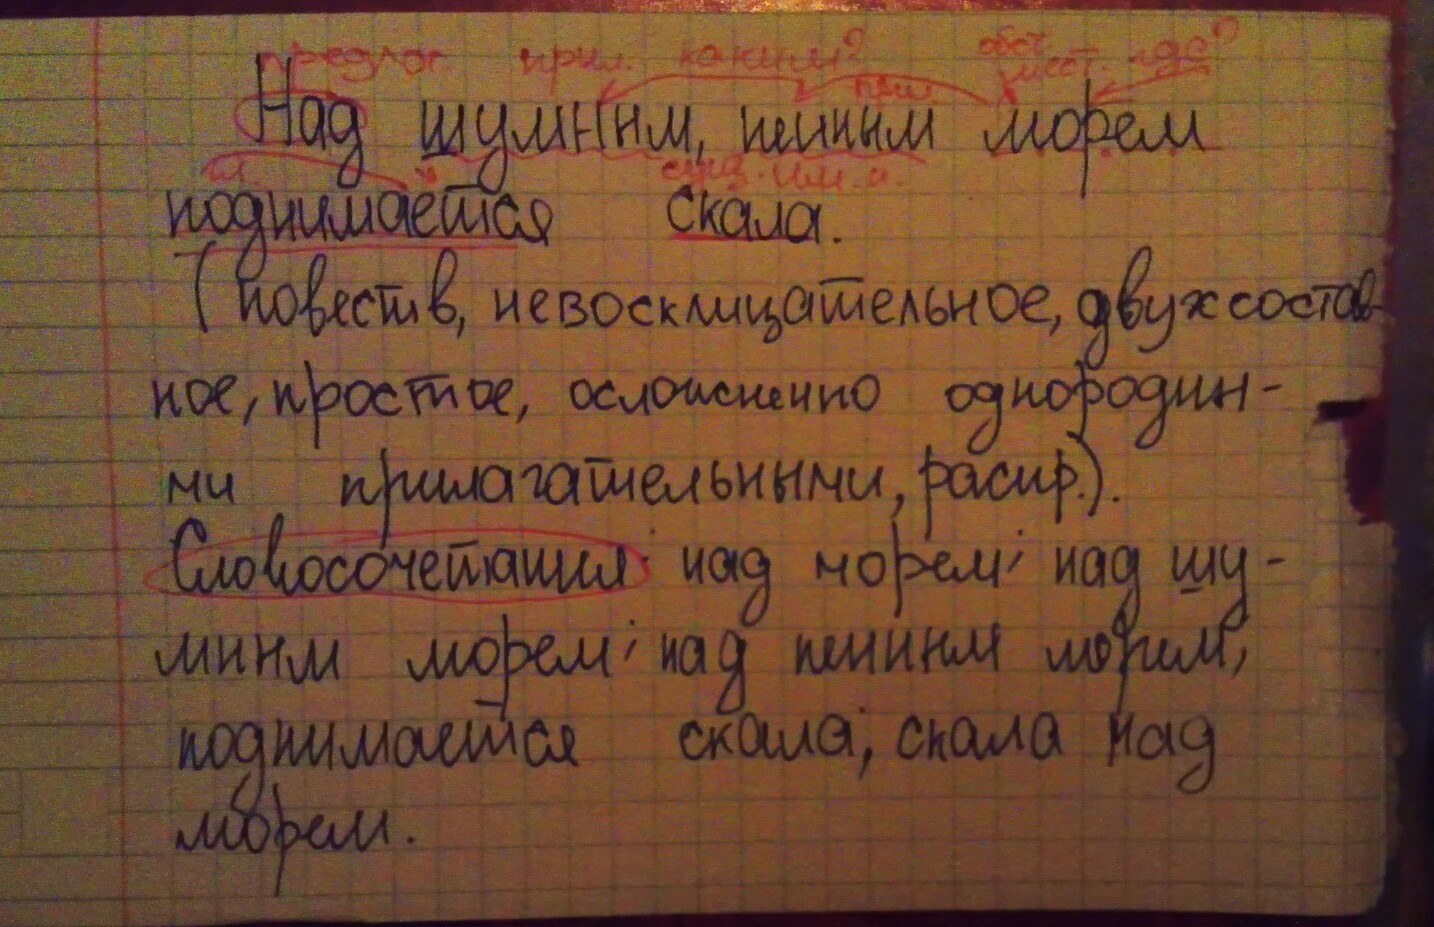 предлог прил. каким? обст. мест. где?
Над шумным, пенным морем
прил.
гл. сущ. им. п.
поднимается скала.
(повеств, невосклицательное, двухсостав-
ное, простое, осложненно однородны-
ми прилагательными, распр.).
Словосочетания: над морем; над шу-
мным морем; над пенным морем,
поднимается скала; скала над
морем.